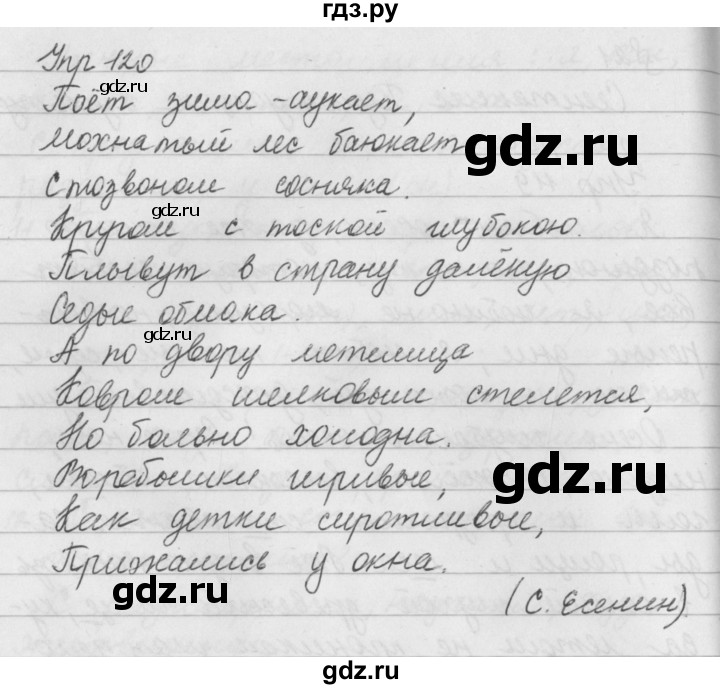 гдз.ру
Упр 120
gdz.ru
Поёт зима - аукает,
Мохнатый лес баюкает
gdz.ru
Стозвоном сосняка.
gdz.ru
Кругом с тоской глубокою.
Плывут в страну далёкую
Седые облака.
gdz.ru
А по двору метелица
Ковром шелковым стелется,
Но больно холодна.
Воробышки игривые,
gdz.ru
Как детки сиротливые,
Прижались у окна.
gdz.ru
(С. Есенин)
gdz.ru